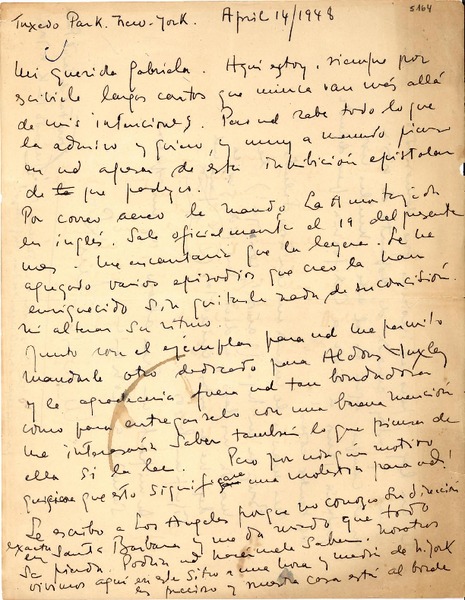 5164
Tuxedo Park. New-York. April 14/1948
Mi querida Gabriela. Aquí estoy, siempre por
escribirle largas cartas que nunca van más allá
de mis intenciones. Pero ud sabe todo lo que
la admiro y quiero, y muy a menudo pienso
en ud apesar de esta inhibición epistolar
de que padezco.
Por correo aereo le mando La Amortajada
en inglés. Sale oficialmente el 19 del presente
mes. Me encantaria que la leyera. Le he
agregado varios episodios que creo la han
enriquecido sin quitarle nada de su concisión.
ni alterar su ritmo.
Junto con el ejemplar para ud me permito
mandarle otro dedicado para Aldous Huxley
y le agradeceria fuera ud tan bondadosa
como para entregarselo con una buena mención
me interesaria saber también lo que piensa de
ella si la lee. Pero por ningún motivo
quisiera que esto significara una molestia para ud!
Le escribo a Los Angeles porque no conozco su dirección
exacta en Santa Barbara y me da miedo que todo
se pierda. Podria ud hacermela saber. Nosotros
vivimos aqui en este sitio a una hora y media de N. York
es precioso y nuestra casa está al borde